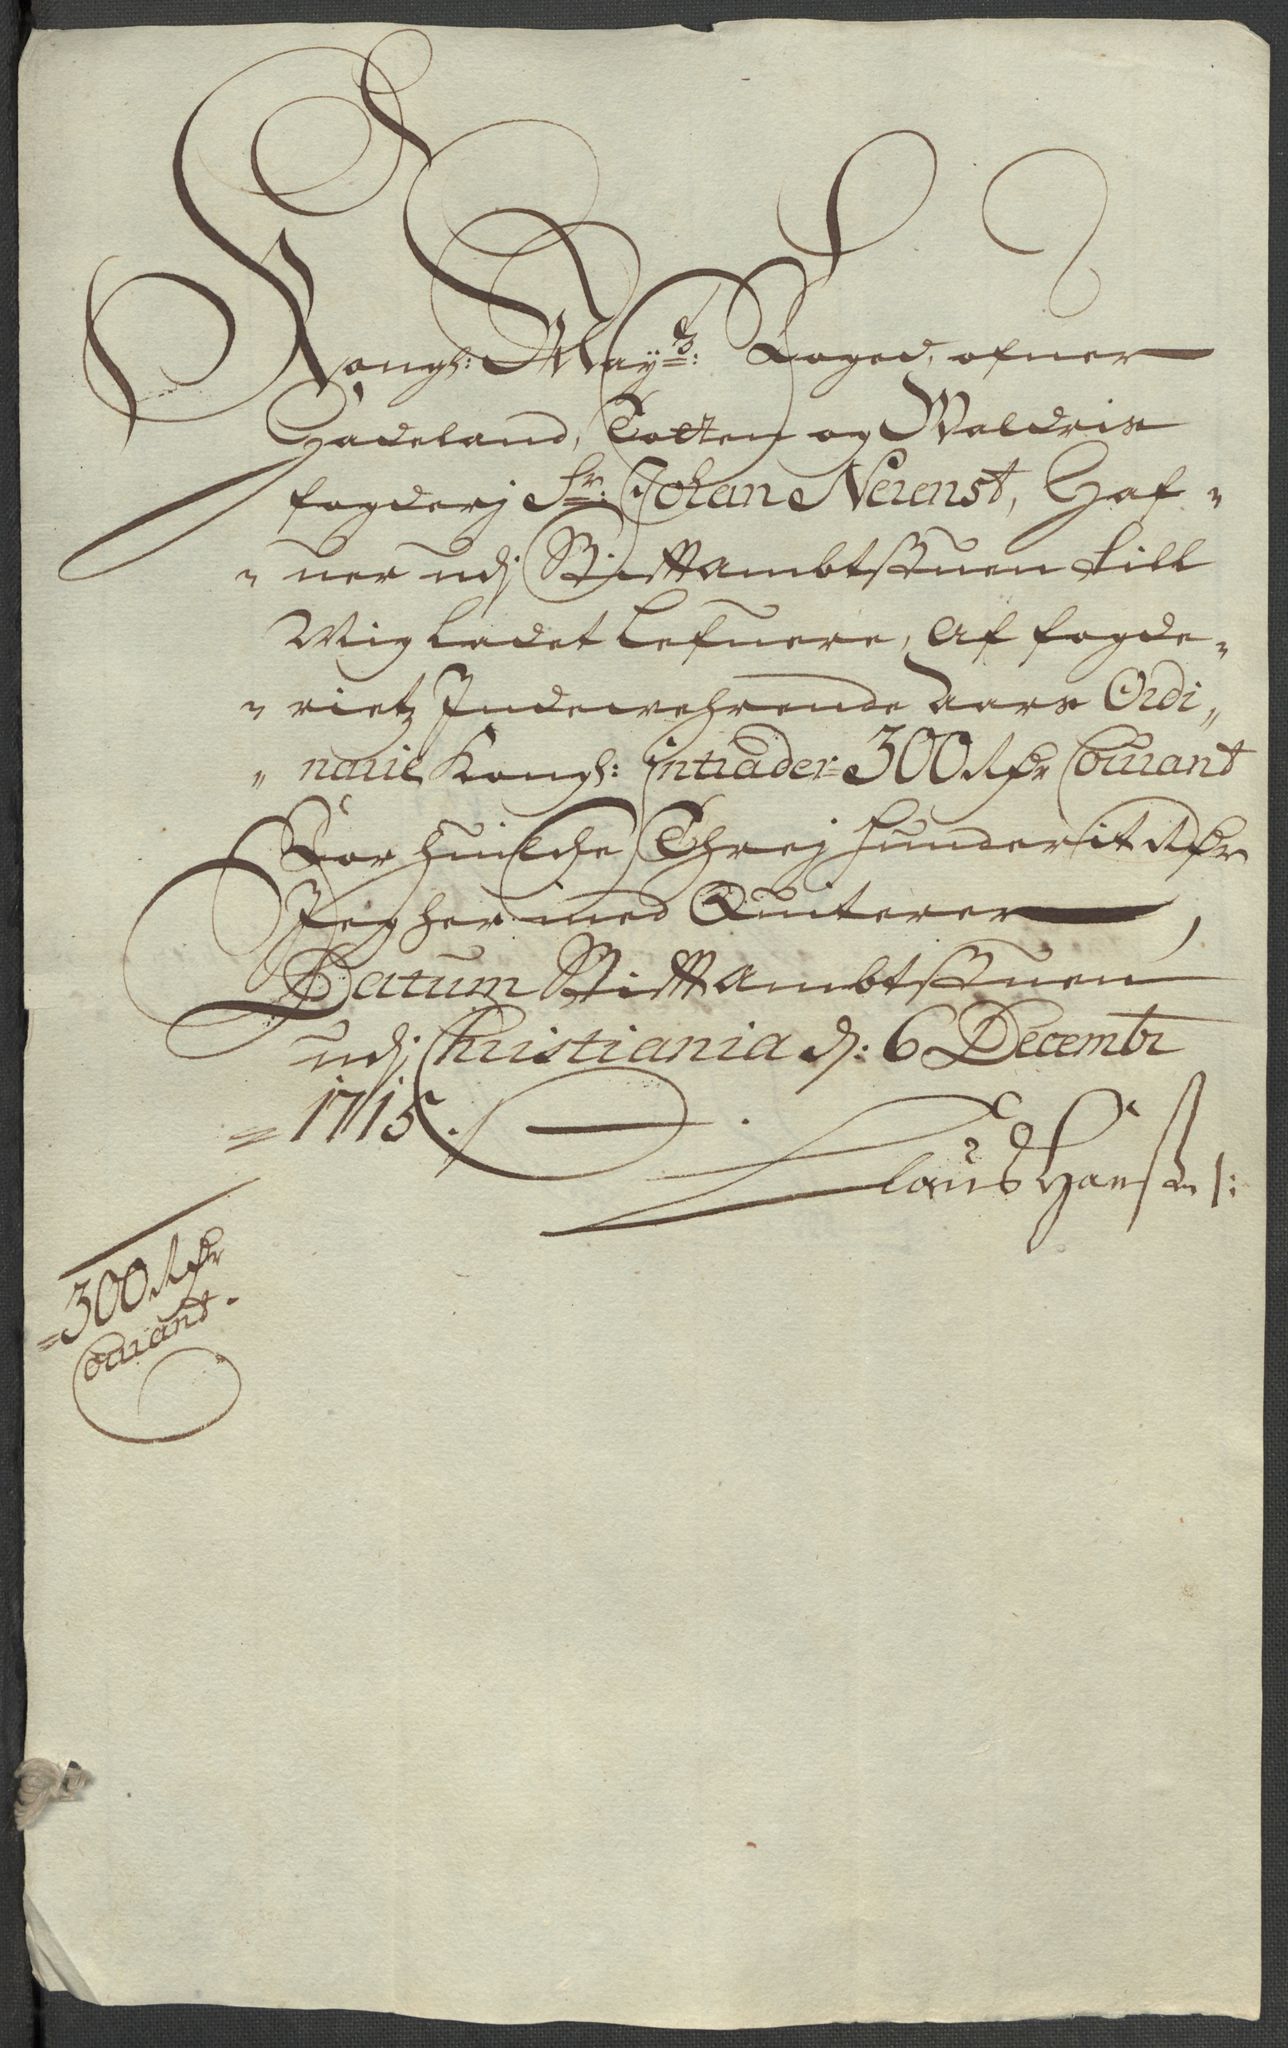 Kongl: May:ts: Foged, ofuer
Hadeland, Totten og Waldris
fogderj Sr: Johan Nerenst, Haf¬
¬ uer udj Stifftambtstuen till
Mig ladet lefuere, Af fogde¬
¬ rietz Indewehrende Aars Ordi¬
¬ narie Kongl: intrader 300 Rdr Courant
For huilche Threj hunderit Rdr
Jeg her med Quiterer,
Datum Stifftambtstuen
udj Christiania d: 6 Decembr
1715.
Claus Hansen
300 Rdr
Courant.